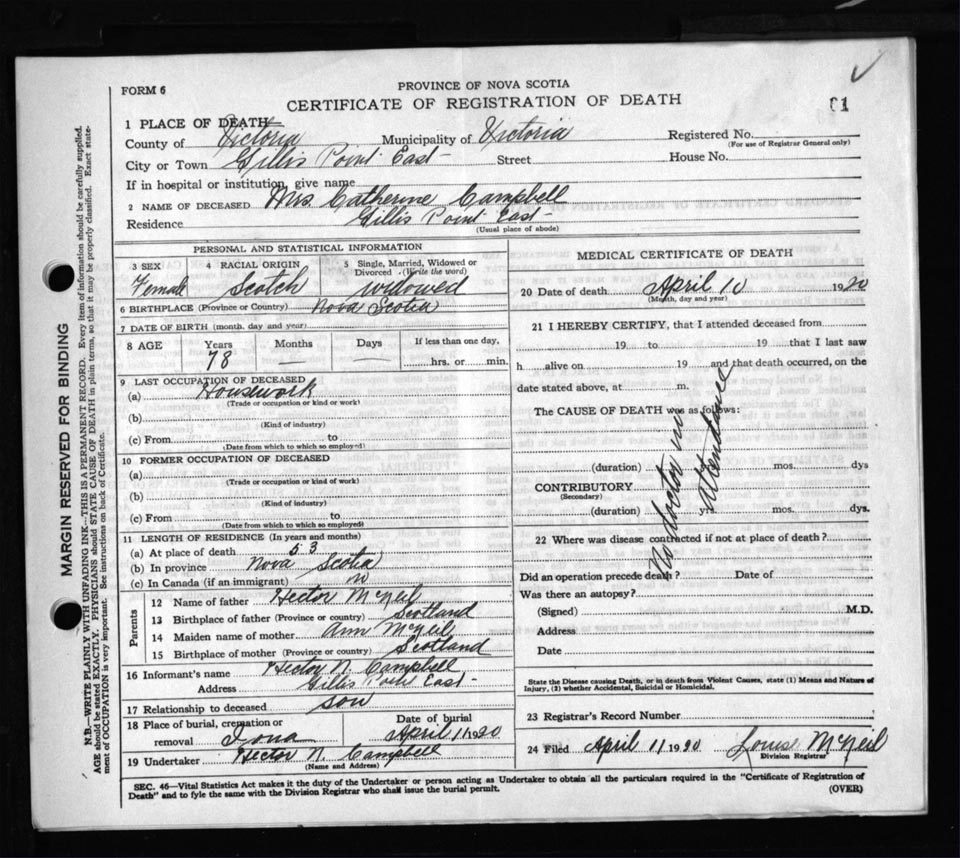 FORM 6
PROVINCE OF NOVA SCOTIA
CERTIFICATE OF REGISTRATION OF DEATH
1 PLACE OF DEATH
County of Victoria Municipality of Victoria Registered No.
(For use of Registrar General only)
City or Town Gillis Point East Street House No.
If in hospital or institution, give name
2 NAME OF DECEASED Mrs Catherine Campbell
Residence Gillis Point East
(Usual place of abode)
PERSONAL AND STATISTICAL INFORMATION
3 SEX 4 RACIAL ORIGIN 5 Single, Married, Widowed or Divorced (Write the word)
Female Scotch widowed
6 BIRTHPLACE (Province or Country) Nova Scotia
7 DATE OF BIRTH (month, day and year)
8 AGE Years Months Days If less than one day,
78 — — hrs. or min.
9 LAST OCCUPATION OF DECEASED
(a) Housework
(Trade or occupation or kind or work)
(b)
(Kind of industry)
(c) From to
(Date from which to which so employed)
10 FORMER OCCUPATION OF DECEASED
(a)
(Trade or occupation or kind of work)
(b)
(Kind of industry)
(c) From to
(Date from which to which so employed)
11 LENGTH OF RESIDENCE (In years and months)
(a) At place of death 53
(b) In province Nova Scotia
(c) In Canada (if an immigrant)
Parents
12 Name of father Hector McNeil
13 Birthplace of father (Province or country) Scotland
14 Maiden name of mother Ann McNeil
15 Birthplace of mother (Province or country) Scotland
16 Informant's name Hector N. Campbell
Address Gillis Point East
17 Relationship to deceased son
18 Place of burial, cremation or removal Iona Date of burial April 11 1920
19 Undertaker Hector N. Campbell
(Name and Address)
MEDICAL CERTIFICATE OF DEATH
20 Date of death April 10 1920
(Month, day and year)
21 I HEREBY CERTIFY, that I attended deceased from
19 to 19 that I last saw
h alive on 19 and that death occurred, on the
date stated above, at m.
The CAUSE OF DEATH was as follows:
No doctor in attendance
(duration) mos. dys
CONTRIBUTORY
(Secondary)
(duration) yr mos. dys.
22 Where was disease contracted if not at place of death?
Did an operation precede death? Date of
Was there an autopsy?
(Signed) M.D.
Address
Date
State the Disease causing Death, or in death from Violent Causes, state (1) Means and Nature of
Injury, (2) whether Accidental, Suicidal or Homicidal.
23 Registrar's Record Number
24 Filed April 11 1920 Louise McNeil
Division Registrar
SEC. 46—Vital Statistics Act makes it the duty of the Undertaker or person acting as Undertaker to obtain all the particulars required in the "Certificate of Registration of
Death" and to fyle the same with the Division Registrar who shall issue the burial permit.
(OVER)
MARGIN RESERVED FOR BINDING
N.B.—WRITE PLAINLY WITH UNFADING INK—THIS IS A PERMANENT RECORD. Every item of information should be carefully supplied.
AGE should be stated EXACTLY. PHYSICIANS should STATE CAUSE OF DEATH in plain terms, so that it may be properly classified. Exact state-
ment of OCCUPATION is very important. See instructions on back of Certificate.